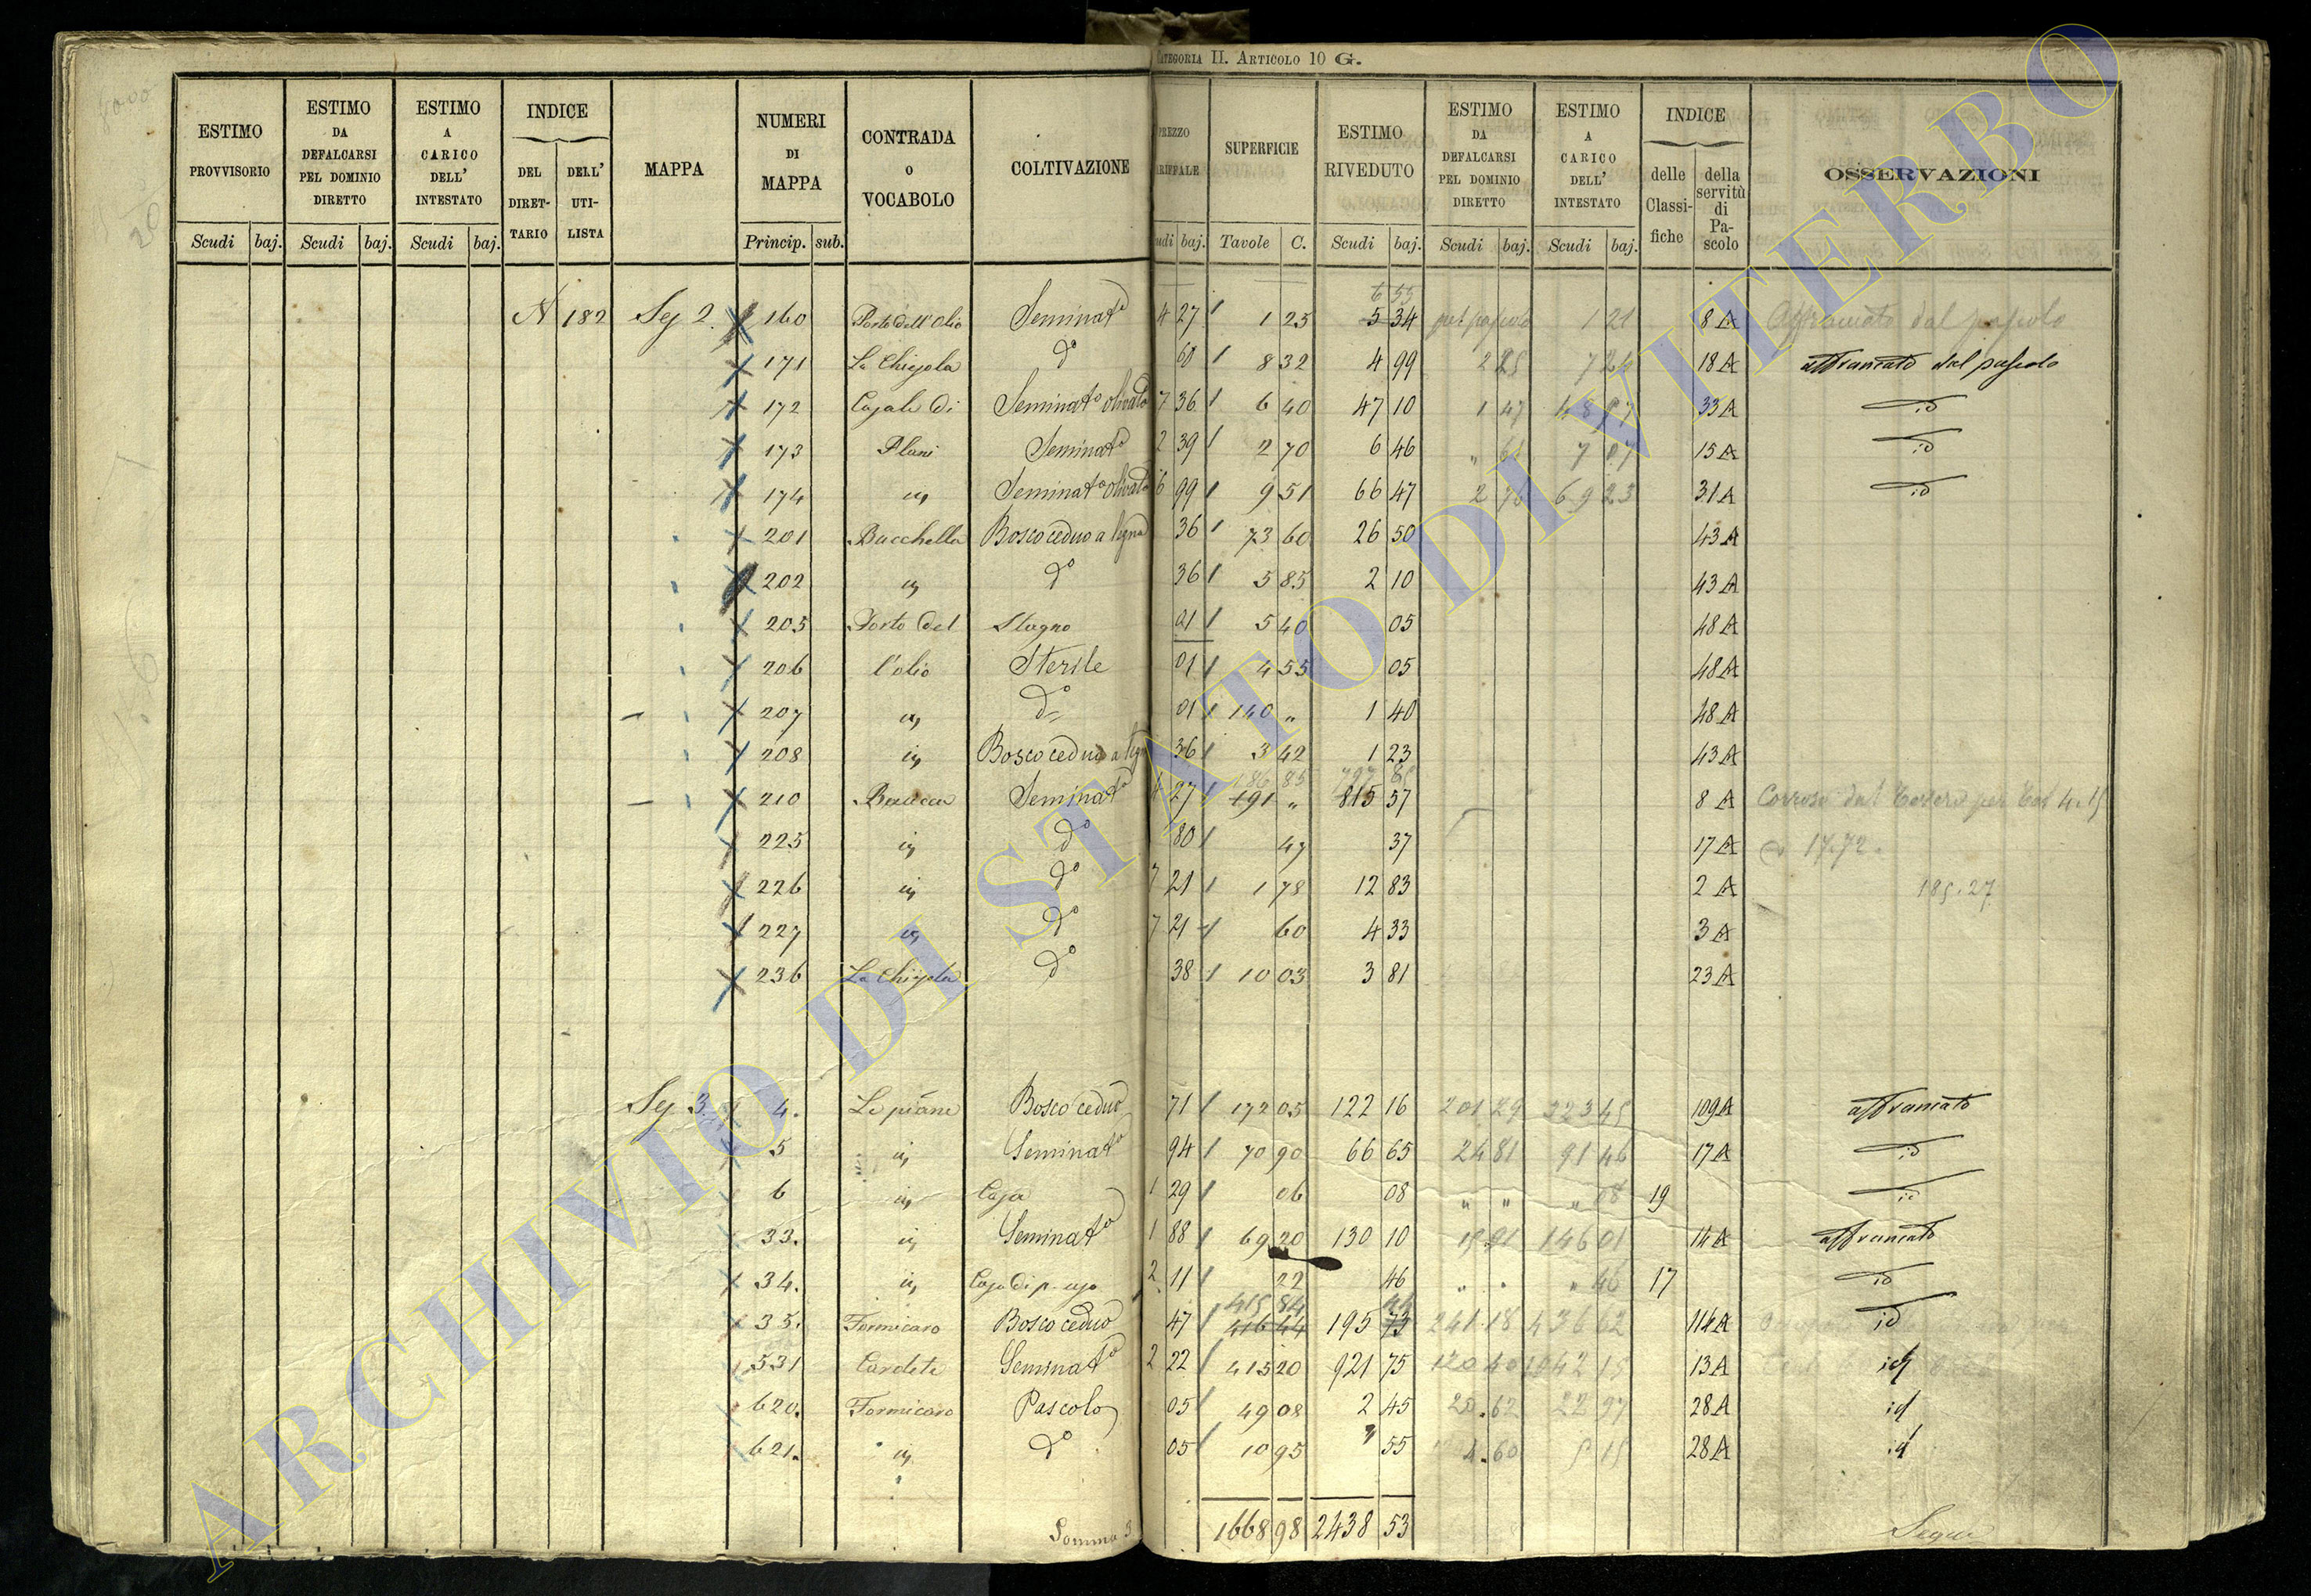 CATEGORIA II. ARTICOLO 10 G.
ESTIMO PROVVISORIO
ESTIMO DA DEFALCARSI PEL DOMINIO DIRETTO
ESTIMO A CARICO DELL' INTESTATO
INDICE
DEL DIRETTARIO
DELL' UTILISTA
MAPPA
NUMERI DI MAPPA
CONTRADA o VOCABOLO
COLTIVAZIONE
PREZZO
SUPERFICIE
ESTIMO RIVEDUTO
ESTIMO DA DEFALCARSI PEL DOMINIO DIRETTO
ESTIMO A CARICO DELL' INTESTATO
INDICE
delle Classifiche
della servitù di Pascolo
OSSERVAZIONI
Scudi baj. Scudi baj. Scudi baj. Princip. sub. baj. Tavole C. Scudi baj. Scudi baj. Scudi baj.
6 55
A 182 Sez 2. 160 Porto dell'Olio Seminato 4 27 1 25 5 34 1 21 8 A Affrancato dal pascolo
171 La Chiesola do 60 8 32 4 99 18 A affrancato dal pascolo
172 Casale di Seminato olivato 7 36 6 40 47 10 1 47 33 A id
173 Plani Seminato 2 39 2 70 6 46 15 A id
174 id Seminato olivato 6 99 9 51 66 47 69 23 31 A id
201 Bacchella Bosco ceduo a legna 36 73 60 26 50 43 A
202 id do 36 5 85 2 10 43 A
205 Porto del Stagno 01 5 40 05 48 A
206 l'olio Sterile 01 4 55 05 48 A
207 id do 01 140 " 1 40 48 A
208 id Bosco ceduo a 36 3 42 1 23 43 A
186 85 797 85
210 Seminato 4 27 191 " 815 57 8 A Corroso dal Tevere per Tav 4.15
225 id do 80 47 37 17 A 17.72.
226 id do 7 21 1 78 12 83 2 A 185.27
227 id do 7 21 60 4 33 3 A
236 La Chiesola do 38 10 03 3 81 23 A
Sez 3. 4. Le piane Bosco ceduo 71 172 05 122 16 201 29 323 45 109 A affrancato
5 id Seminato 94 70 90 66 65 24 81 91 46 17 A id
6 id Casa 1 29 06 08 " " " 08 19 id
33. id Seminato 1 88 69 20 130 10 15 91 146 01 14 A affrancato
34. id Casa di p. uso 2 11 22 46 " 46 17 id
415 84
35. Formicaro Bosco ceduo 47 416 44 195 73 241 18 436 62 114 A id
531 Cardete Seminato 2 22 415 20 921 75 120 40 1042 15 13 A id
620. Formicaro Pascolo 05 49 08 2 45 20.62 22 97 28 A id
621. id do 05 10 95 " 55 4.60 5 15 28 A id
Somma 1668 98 2438 53 Segue